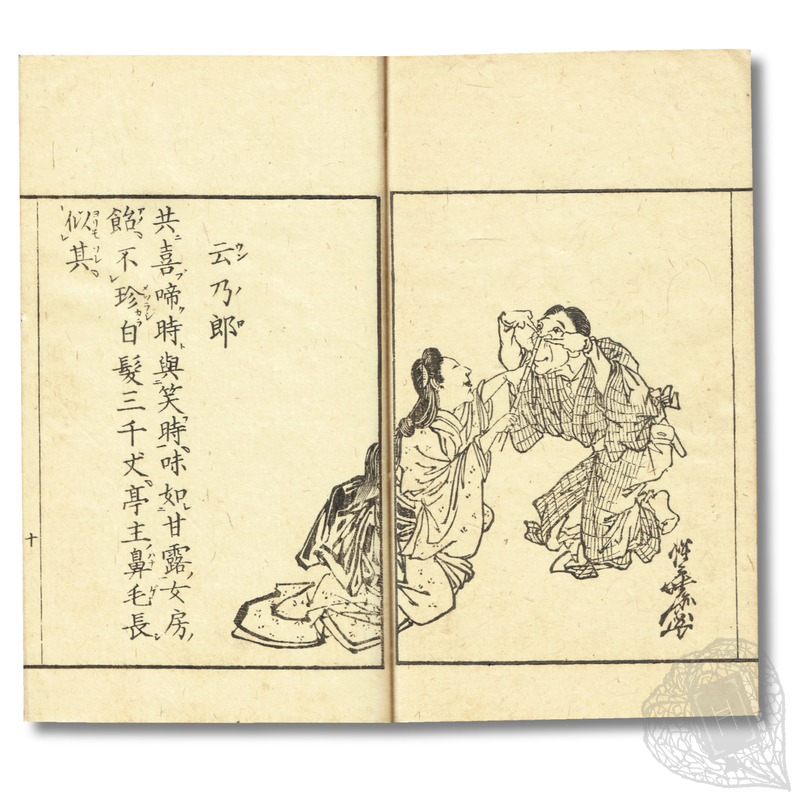 云乃郎
共喜啼時與笑時味如甘露女房
飴不珍白髮三千丈亭主鼻毛長
似其
十
H